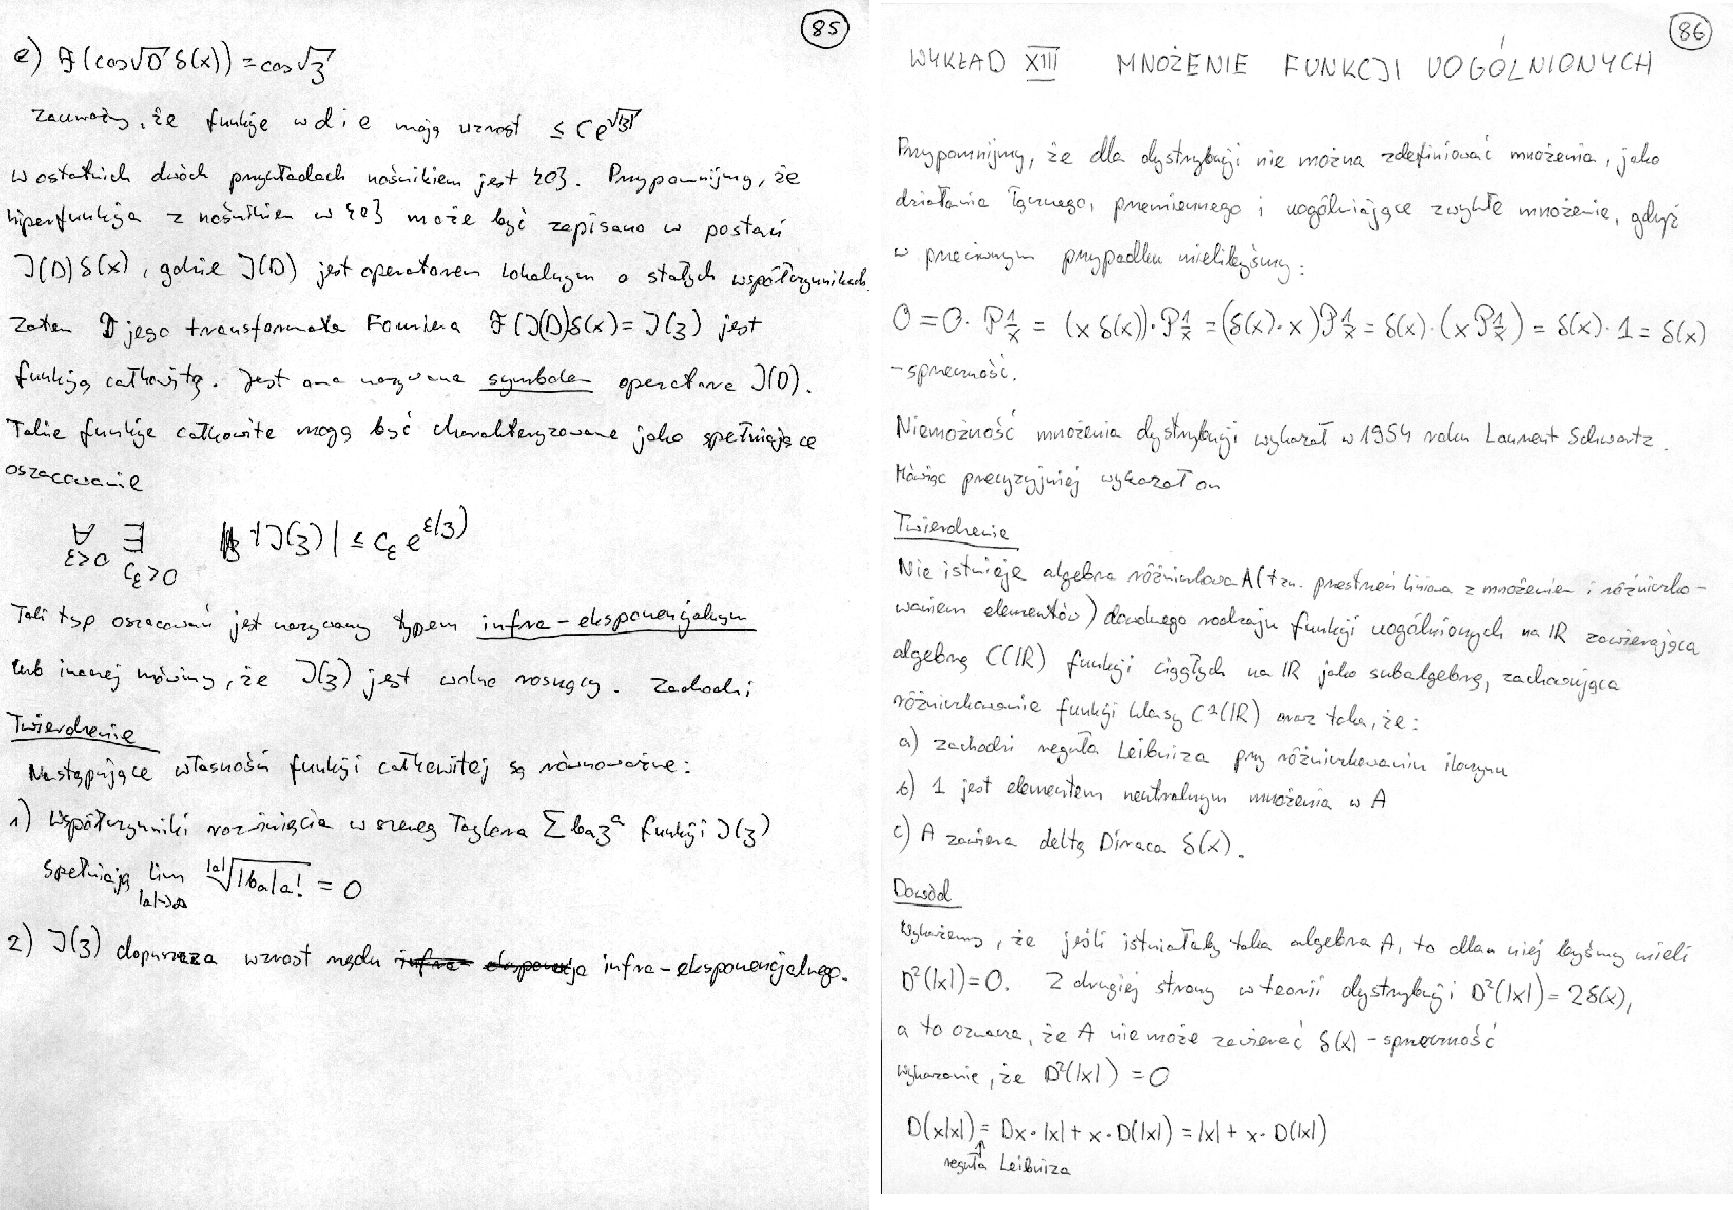 85
e) F(cos√D δ(x)) = cos√ʒ
Zauważmy, że funkcje w d i e mają wzrost ≤ Ce^√|ʒ|
W ostatnich dwóch przykładach nośnikiem jest {0}. Przypomnijmy, że
hiperfunkcja z nośnikiem w {0} może być zapisana w postaci
J(D)δ(x), gdzie J(D) jest operatorem lokalnym o stałych współczynnikach.
Zatem jego transformata Fouriera F(J(D)δ(x) = J(ʒ) jest
funkcją całkowitą. Jest ona nazywana symbolem operatora J(D).
Takie funkcje całkowite mogą być charakteryzowane jako spełniające
oszacowanie
∀ε>0 ∃Cε>0 |J(ʒ)| ≤ Cε e^ε|ʒ|
Taki typ oszacowań jest nazywany typem infra-eksponencjalnym
lub inaczej mówimy, że J(ʒ) jest wolno rosnący. Zachodzi
Twierdzenie
Następujące własności funkcji całkowitej są równoważne:
1) Współczynniki rozwinięcia w szereg Taylora Σbaʒ^a funkcji J(ʒ)
spełniają lim|a|→∞ |a|√|ba|a! = 0
2) J(ʒ) dopuszcza wzrost rzędu infra-eksponencjalnego.
86
WYKŁAD XIII MNOŻENIE FUNKCJI UOGÓLNIONYCH
Przypomnijmy, że dla dystrybucji nie można zdefiniować mnożenia, jako
działania łącznego, przemiennego i uogólniające zwykłe mnożenie, gdyż
w przeciwnym przypadku mielibyśmy:
0 = 0 · P1/x = (x δ(x)) · P1/x = (δ(x) · x) P1/x = δ(x) · (x P1/x) = δ(x) · 1 = δ(x)
- sprzeczność.
Niemożność mnożenia dystrybucji wykazał w 1954 roku Laurent Schwartz.
Mówiąc precyzyjniej wykazał on
Twierdzenie
Nie istnieje algebra różniczkowa A (tzn. przestrzeń liniowa z mnożeniem i różniczko-
waniem elementów) dowolnego rodzaju funkcji uogólnionych na ℝ zawierająca
algebrę C(ℝ) funkcji ciągłych na ℝ jako subalgebrę, zachowująca
różniczkowanie funkcji klasy C¹(ℝ) oraz taka, że:
a) zachodzi reguła Leibniza przy różniczkowaniu iloczynu
b) 1 jest elementem neutralnym mnożenia w A
c) A zawiera deltę Diraca δ(x).
Dowód
Wykażemy, że jeśli istniałaby taka algebra A, to dla niej byśmy mieli
D²(|x|)=0. Z drugiej strony w teorii dystrybucji D²(|x|) = 2δ(x),
a to oznacza, że A nie może zawierać δ(x) - sprzeczność
Wykazanie, że D²(|x|) = 0
D(x|x|) = Dx · |x| + x · D(|x|) = |x| + x · D(|x|)
↑
reguła Leibniza